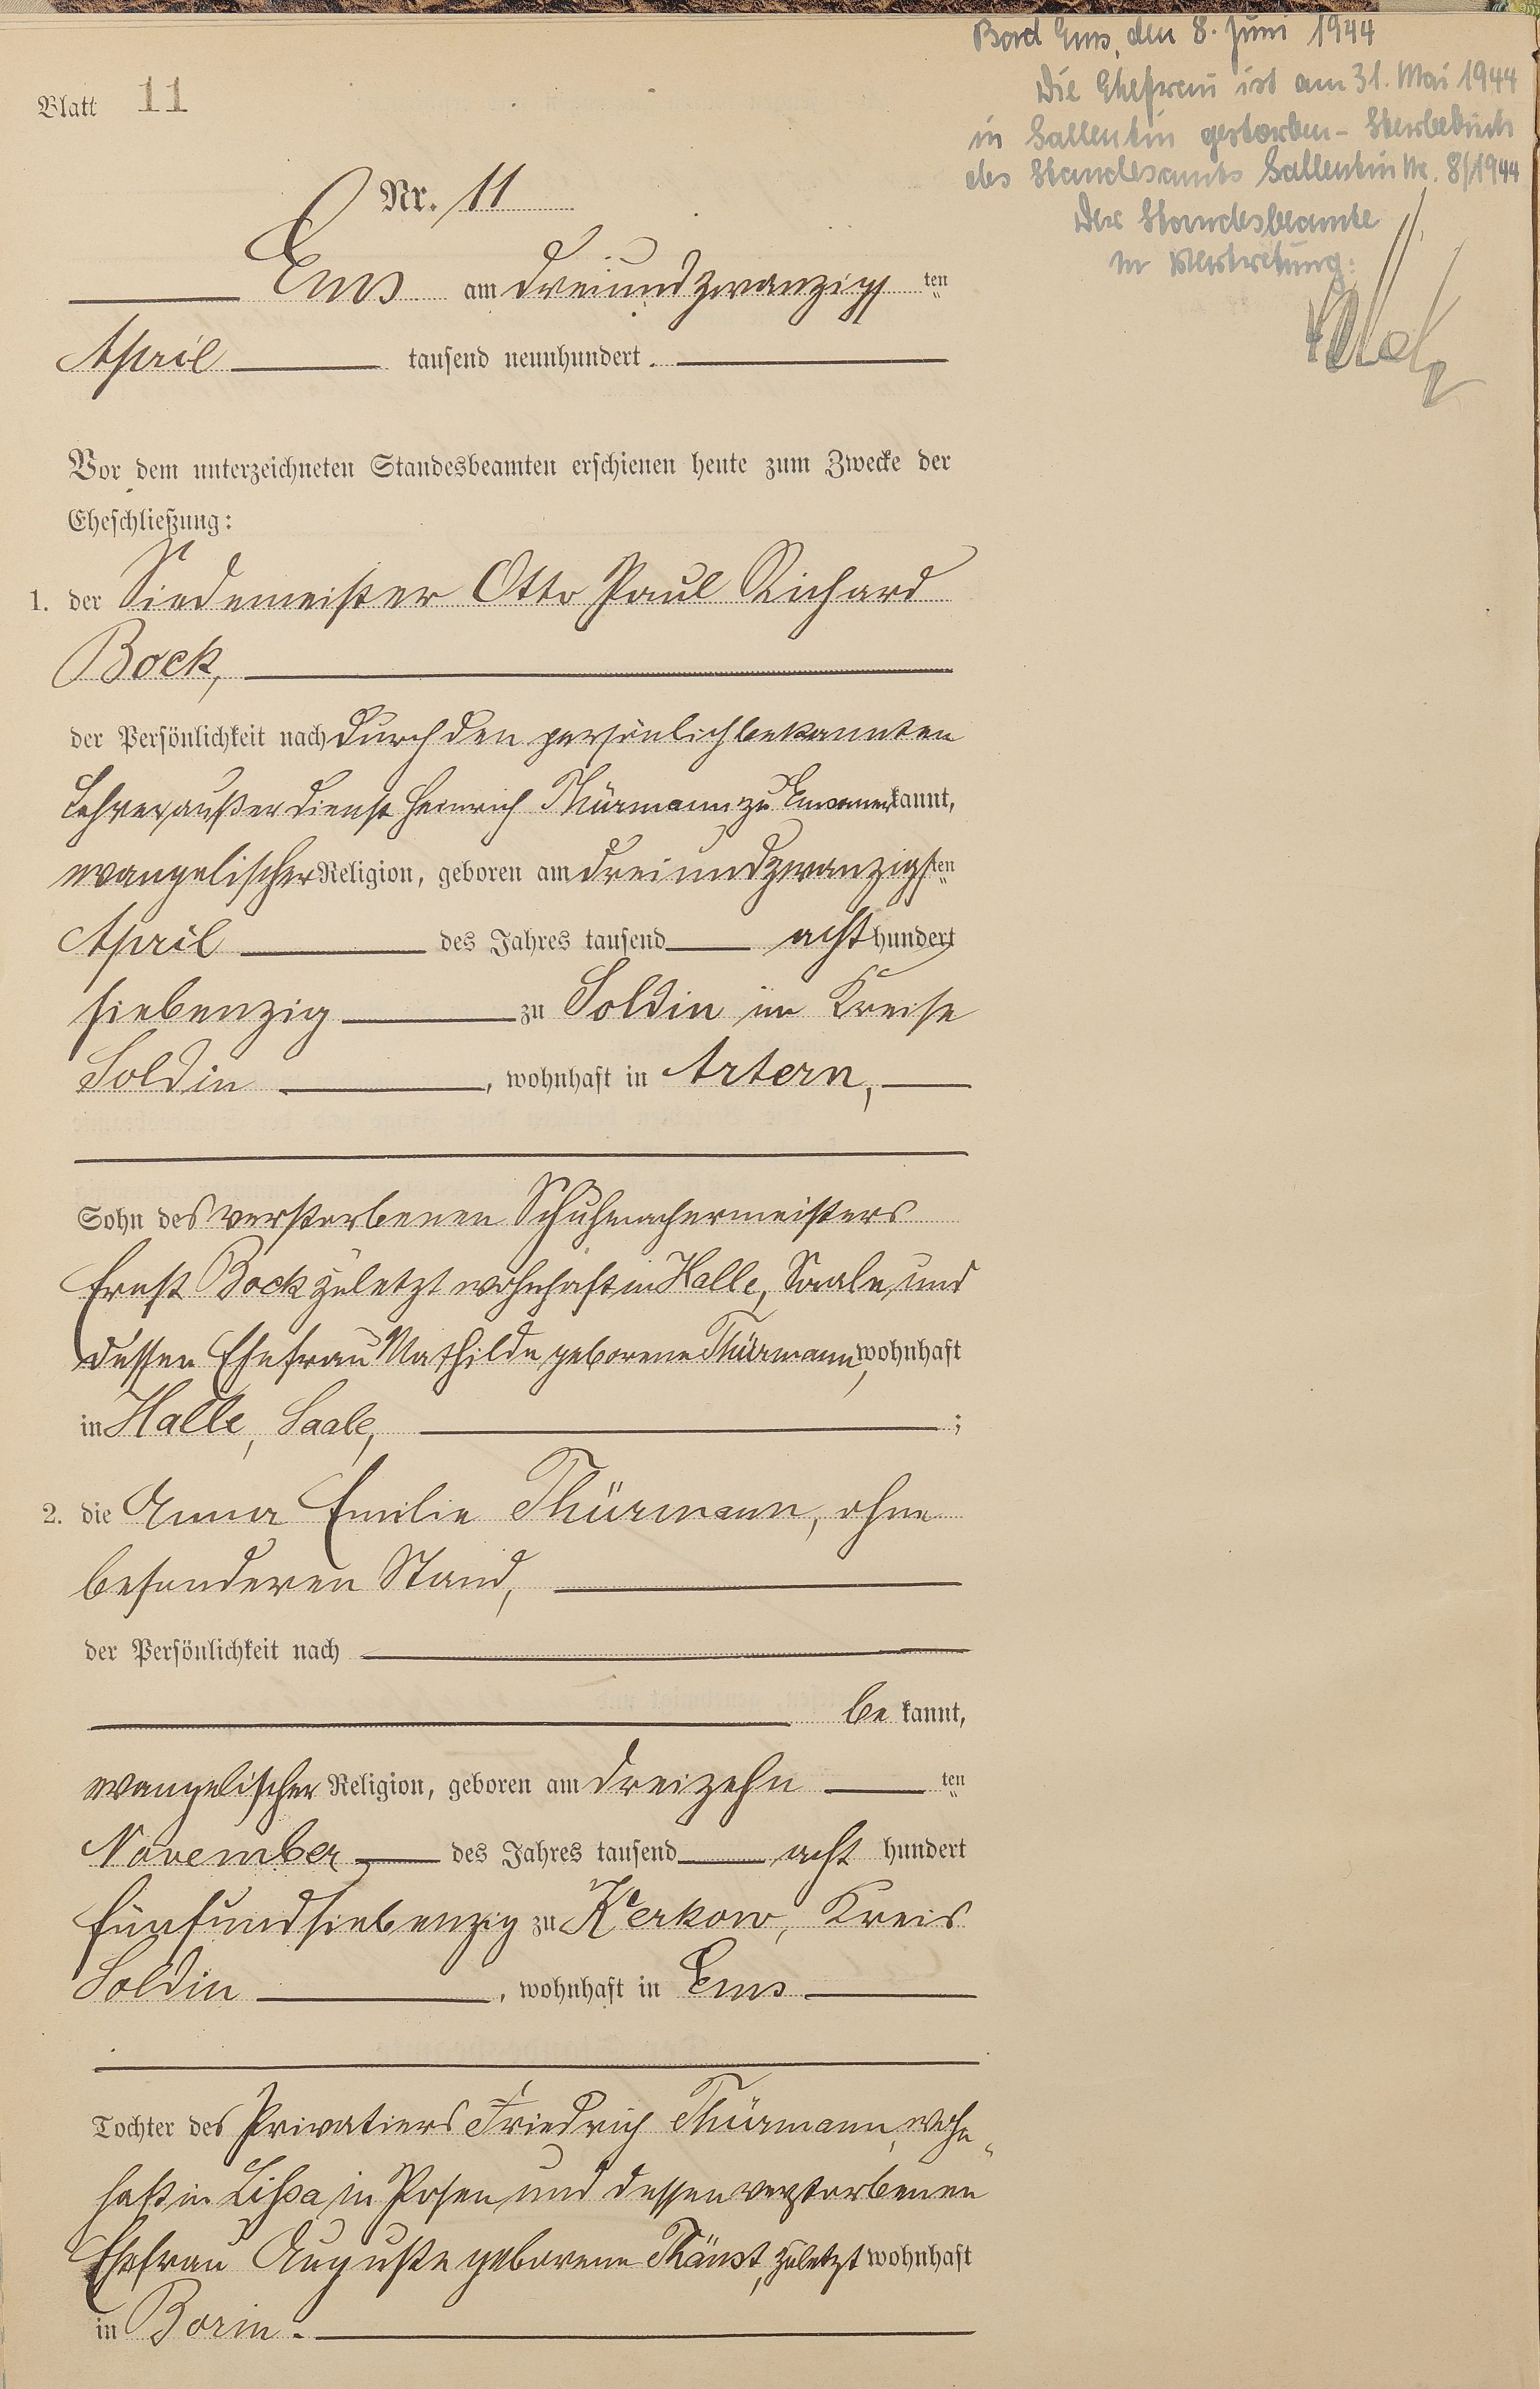 Bad Ems, den 8. Juni 1944
Die Ehefrau ist am 31. Mai 1944
in Sallentin gestorben - Sterbebuch
des Standesamts Sallentin Nr. 8/1944
Der Standesbeamte
In Vertretung:
Blatt 11
Nr. 11
Ems am dreiundzwanzigsten
April tausend neunhundert.
Vor dem unterzeichneten Standesbeamten erschienen heute zum Zwecke der
Eheschließung:
1. der Siedemeister Otto Paul Richard
Bock,
der Persönlichkeit nach durch den persönlich bekannten
Lehrer außer Dienst Heinrich Thürmann zu Ems anerkannt,
evangelischer Religion, geboren am dreiundzwanzigsten
April des Jahres tausend acht hundert
siebenzig zu Soldin im Kreise
Soldin, wohnhaft in Artern,
Sohn des verstorbenen Schuhmachermeisters
Ernst Bock zuletzt wohnhaft in Halle, Saale, und
dessen Ehefrau Mathilde geborene Thürmann, wohnhaft
in Halle, Saale, ;
2. die Anna Emilie Thürmann, ohne
besonderen Stand,
der Persönlichkeit nach
be kannt,
evangelischer Religion, geboren am dreizehn ten
November des Jahres tausend acht hundert
fünfundsiebenzig zu Kerkow, Kreis
Soldin, wohnhaft in Ems
Tochter des Privatiers Friedrich Thürmann, wohn-
haft in Lissa in Posen und dessen verstorbenen
Ehefrau Auguste geborene Thänst, zuletzt wohnhaft
in Borin.